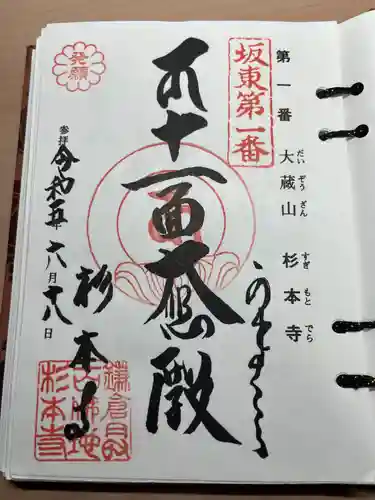 第一番 大蔵山 杉本寺
だいぞうざん すぎもとでら
坂東第一番
発願
奉拝
十一面大悲殿
令和五年六月十八日
杉本寺
鎌倉最古仏地
杉本寺